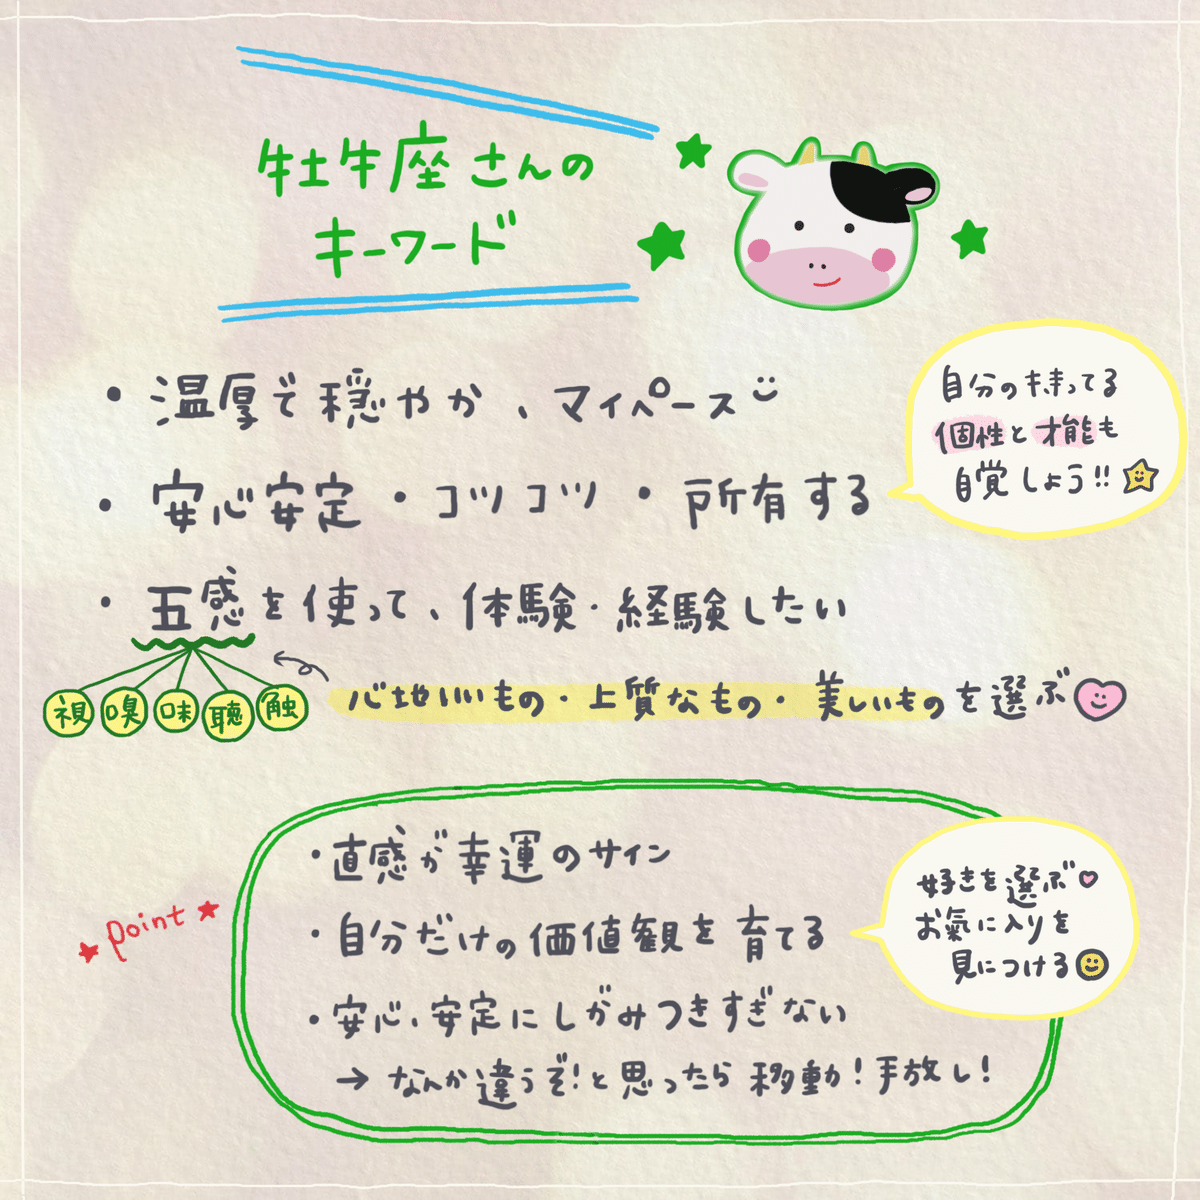 牡牛座さんの
キーワード
・温厚で穏やか、マイペース
・安心安定・コツコツ・所有する
自分の持ってる
個性と才能も
自覚しよう!!
・五感を使って、体験・経験したい
視 嗅 味 聴 触
心地いいもの・上質なもの・美しいものを選ぶ
point
・直感が幸運のサイン
・自分だけの価値観を育てる
好きを選ぶ
お気に入りを
見につける
・安心、安定にしがみつきすぎない
→ なんか違うぞ!と思ったら移動!手放し!